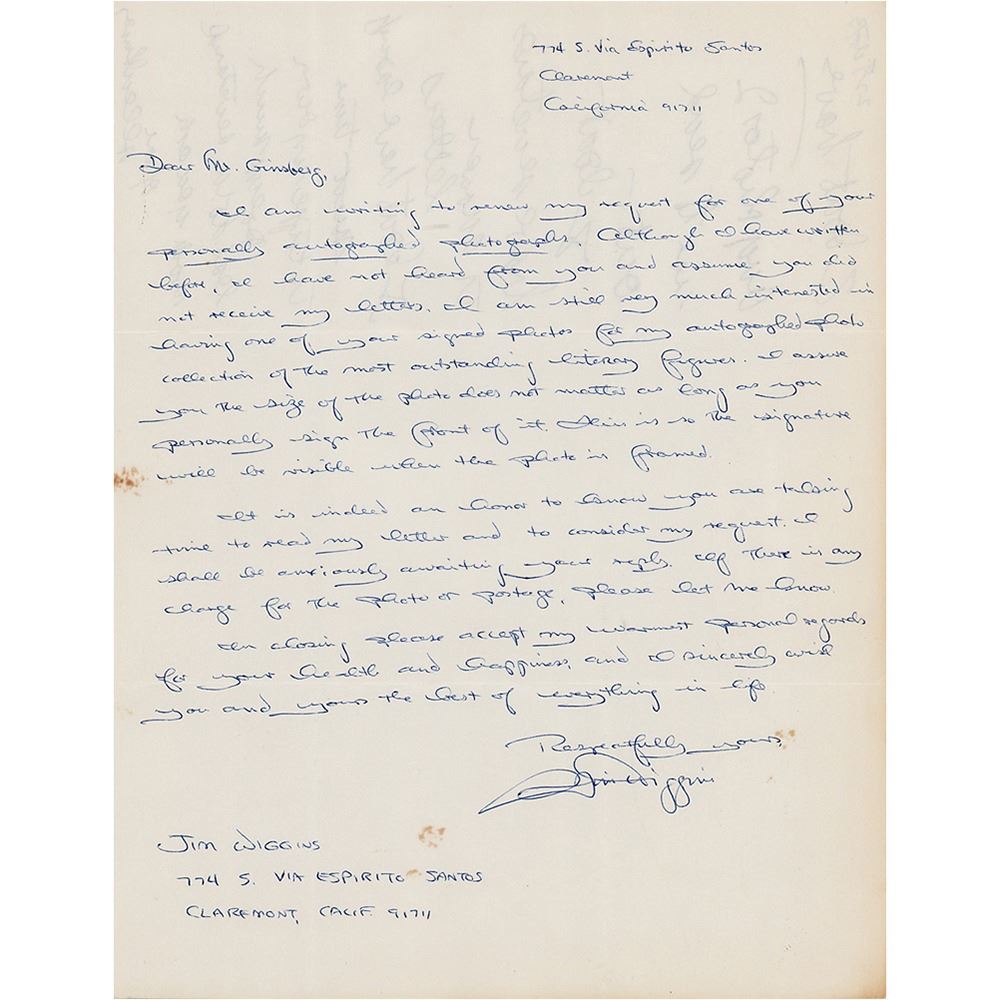 774 S. Via Espirito Santos
Claremont
California 91711
Dear Mr. Ginsberg,
I am writing to renew my request for one of your
personally autographed photographs. Although I have written
before, I have not heard from you and assume you did
not receive my letters. I am still very much interested in
having one of your signed photos for my autographed photo
collection of the most outstanding literary figures. I assure
you the size of the photo does not matter as long as you
personally sign the front of it. This is so the signature
will be visible when the photo is framed.
It is indeed an honor to know you are taking
time to read my letter and to consider my request. I
shall be anxiously awaiting your reply. If there is any
charge for the photo or postage, please let me know.
In closing please accept my warmest personal regards
for your health and happiness, and I sincerely wish
you and yours the best of everything in life.
Respectfully yours,
Jim Wiggins
JIM WIGGINS
774 S. VIA ESPIRITO SANTOS
CLAREMONT, CALIF. 91711